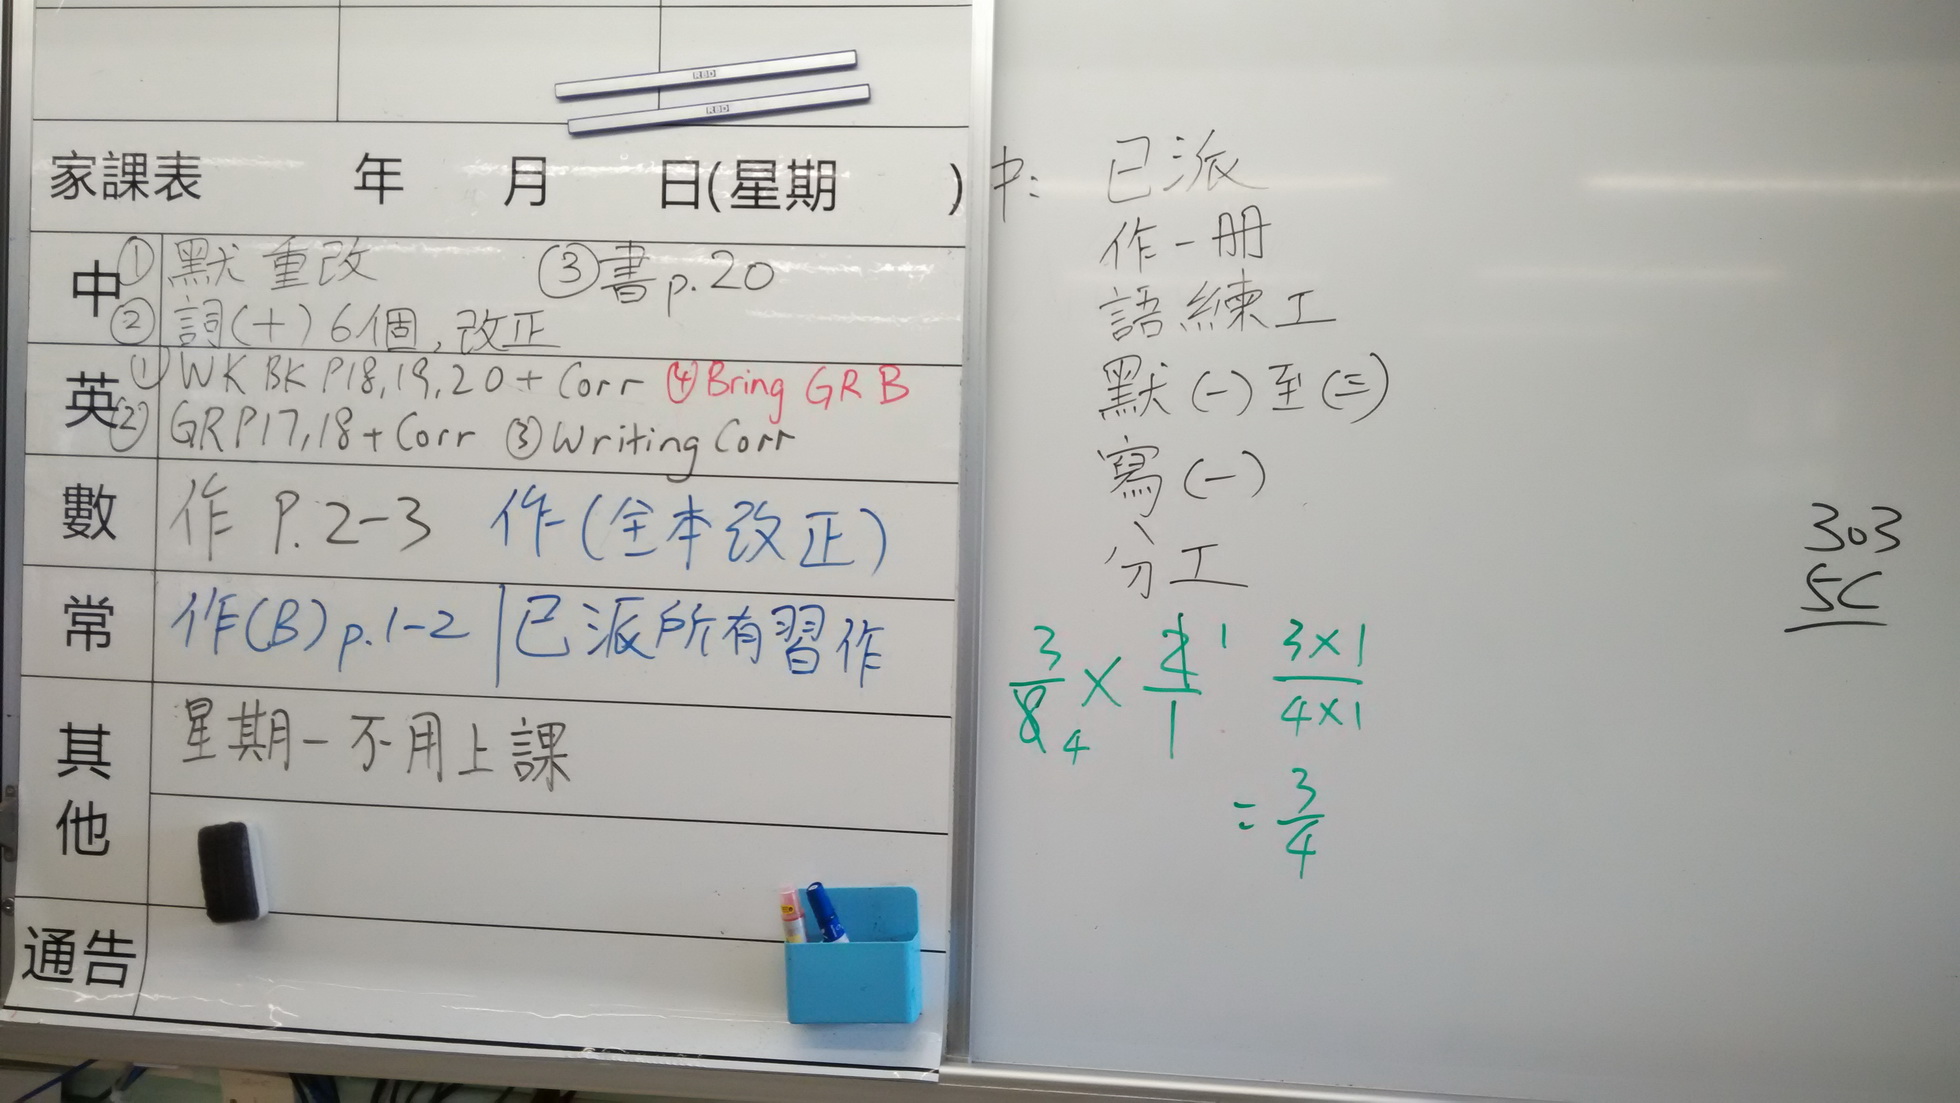 RBD
RBD
家課表 年 月 日(星期 )
中 ① 默 重改 ③ 書 p.20
② 詞(十) 6個, 改正
英 ① WK BK P18,19,20 + Corr ④ Bring GR B
② GR P17,18 + Corr ③ Writing Corr
數 作 P.2-3 作(全本改正)
常 作(B) p.1-2 | 已派所有習作
其他 星期一不用上課
通告
中: 已派
作一冊
語練工
默(一)至(三)
寫(一)
分工
3/8 4 × 2/1 1 3×1/4×1
= 3/4
303
5C